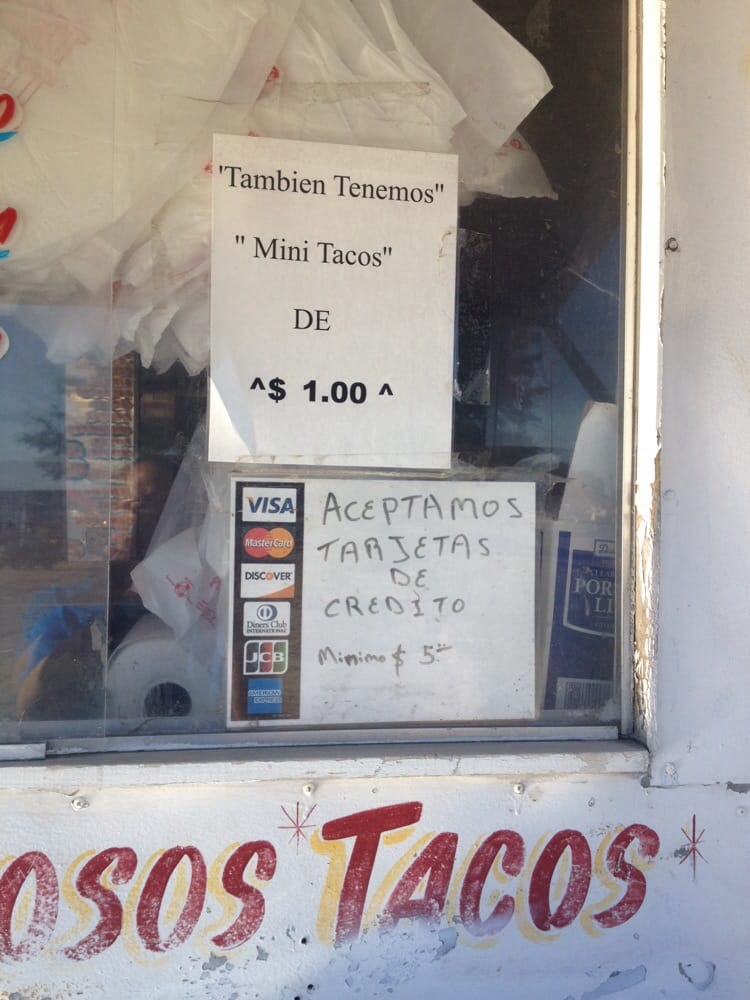 'Tambien Tenemos"
" Mini Tacos"
DE
^$ 1.00 ^
VISA
MasterCard
DISCOVER
Diners Club
INTERNATIONAL
JCB
AMERICAN
EXPRESS
ACEPTAMOS
TARJETAS
DE
CREDITO
Minimo $ 5.
OSOS TACOS